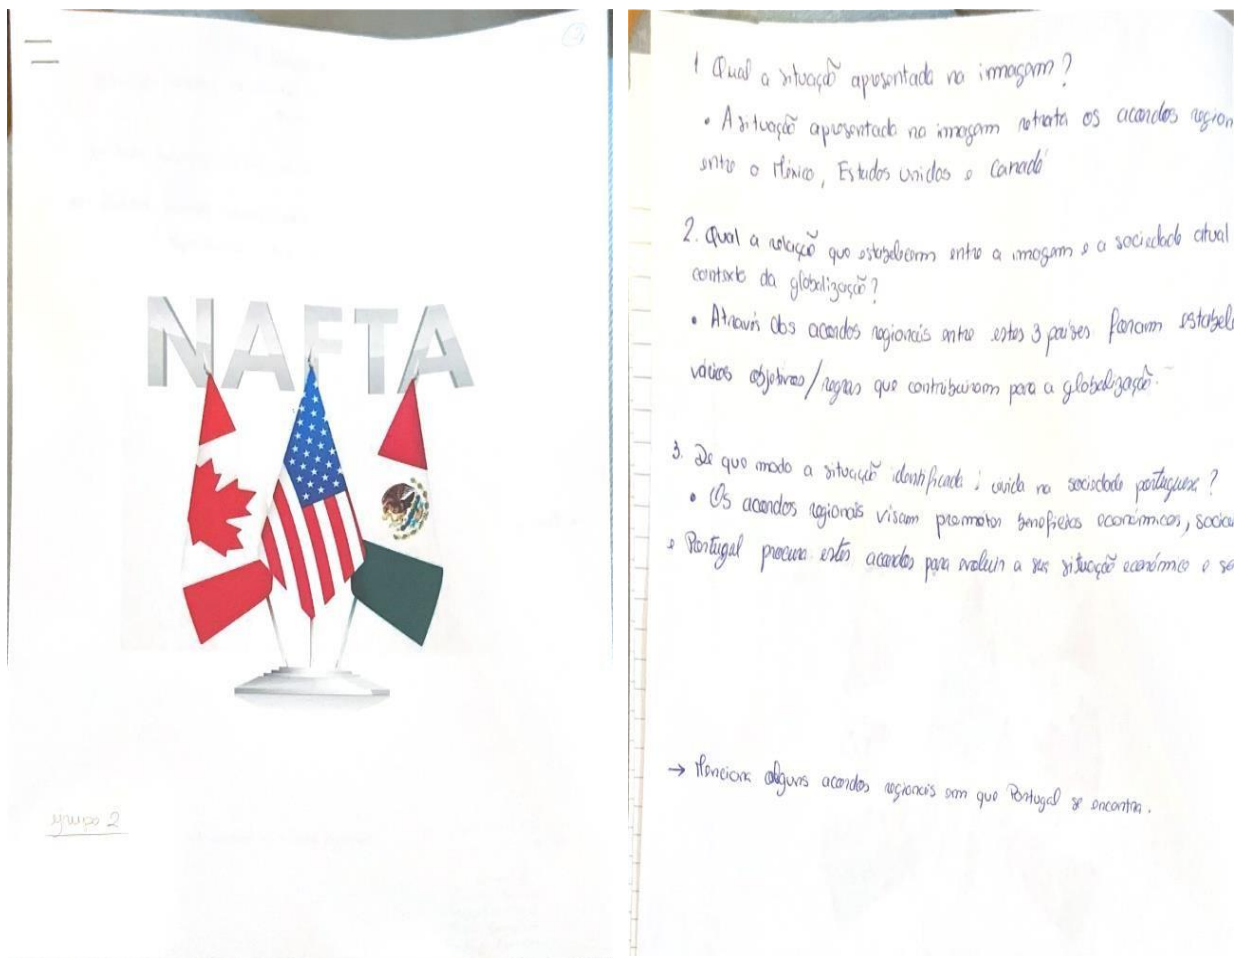 NAFTA
grupo 2
1 Qual a situação apresentada na imagem?
• A situação apresentada na imagem retrata os acordos region
entre o México, Estados unidos e Canadá
2. Qual a relação que estabelecem entre a imagem e a sociedade atual
contexto da globalização?
• Através dos acordos regionais entre estes 3 países foram estabele
vários objetivos/regras que contribuiram para a globalização.
3. De que modo a situação identificada é vivida na sociedade portuguesa?
• Os acordos regionais visam promover benefícios económicos, sociai
e Portugal procura estes acordos para evoluir a sua situação económica e so
→ Menciona alguns acordos regionais em que Portugal se encontra.